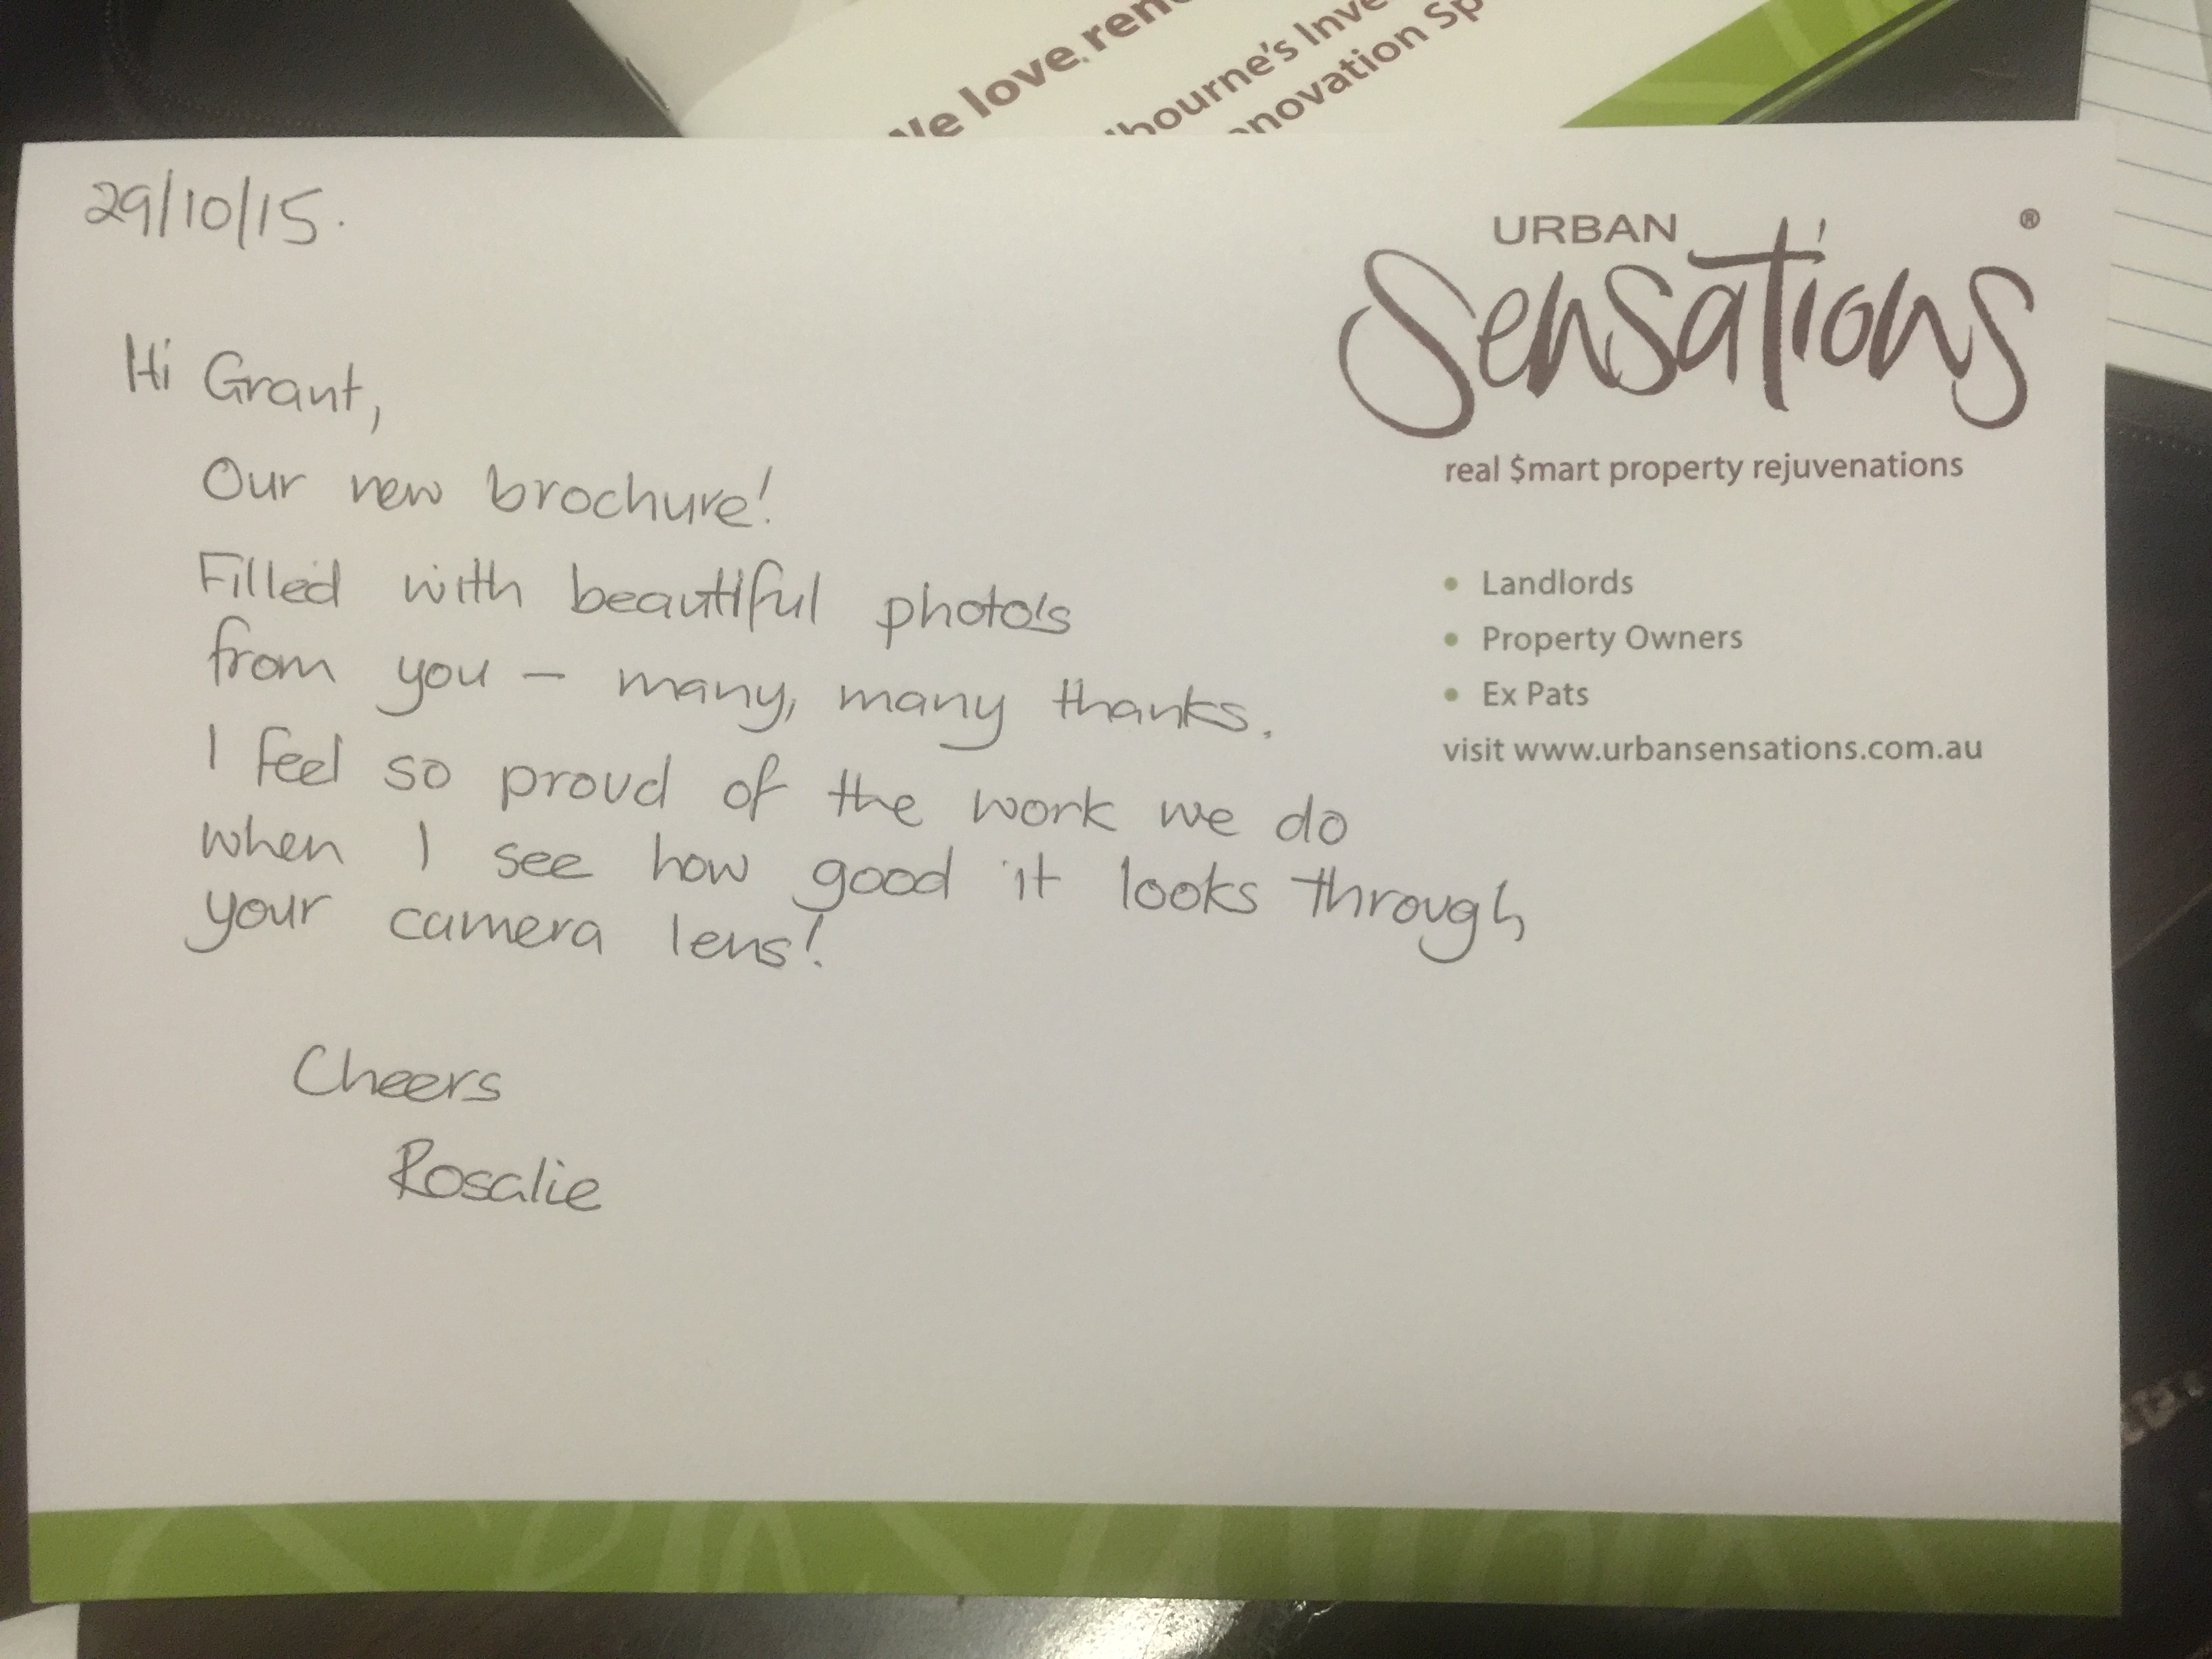 We love
29/10/15.
URBAN
Sensations ®
real $mart property rejuvenations
Hi Grant,
Our new brochure!
Filled with beautiful photo's
from you – many, many thanks.
I feel so proud of the work we do
when I see how good it looks through
your camera lens!
Cheers
Rosalie
• Landlords
• Property Owners
• Ex Pats
visit www.urbansensations.com.au